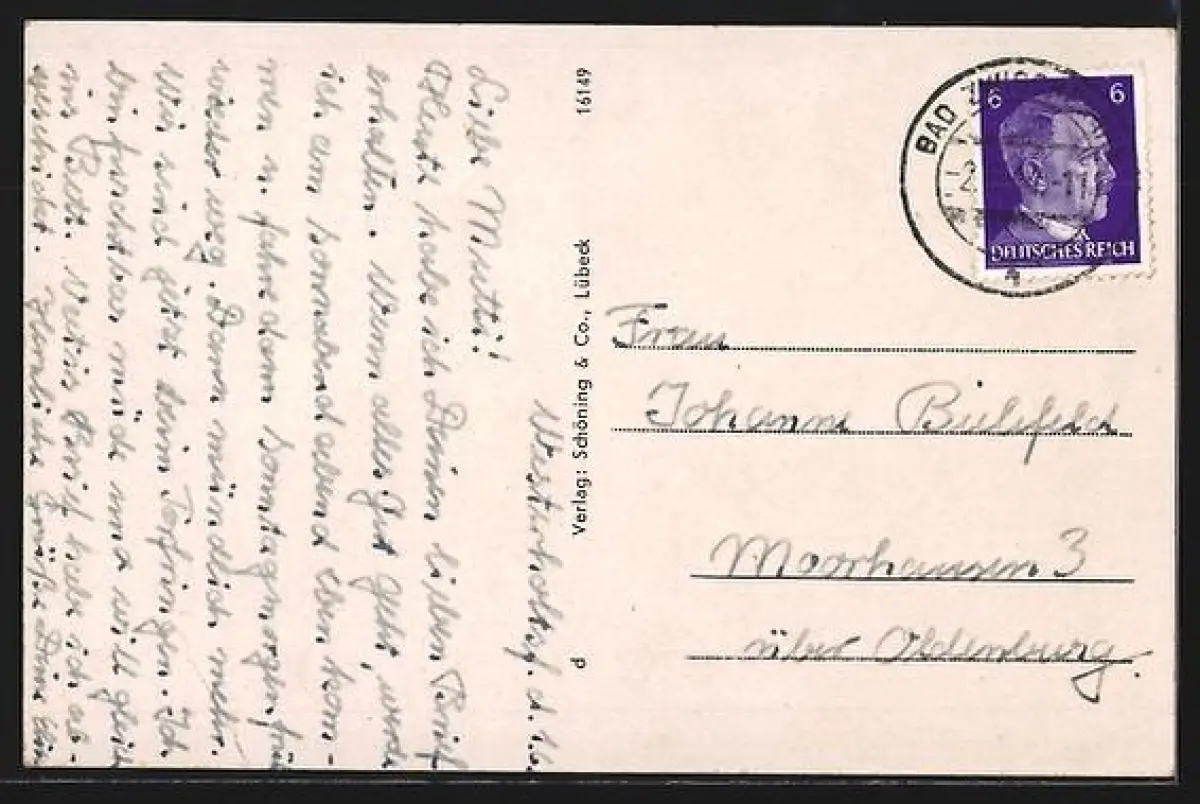 Westerholtsf. d. 1.6.
Liebe Mutti!
Heute habe ich Deinen lieben Brief
erhalten. Wenn alles gut geht, werde
ich am Sonnabend abend eben kom-
men u. fahre dann Sonntagmorgen früh
wieder weg. Dann mündlich mehr.
Wir sind jetzt beim Torfringen. Ich
bin furchtbar müde und will gleich
ins Bett. Brief habe ich ab-
geschickt. Herzliche Grüße Deine
Verlag: Schöning & Co., Lübeck
16149
d
BAD ZWISC
6 6
DEUTSCHES REICH
Frau
Johanne Bielefeld
Moorhausen 3
über Oldenburg.